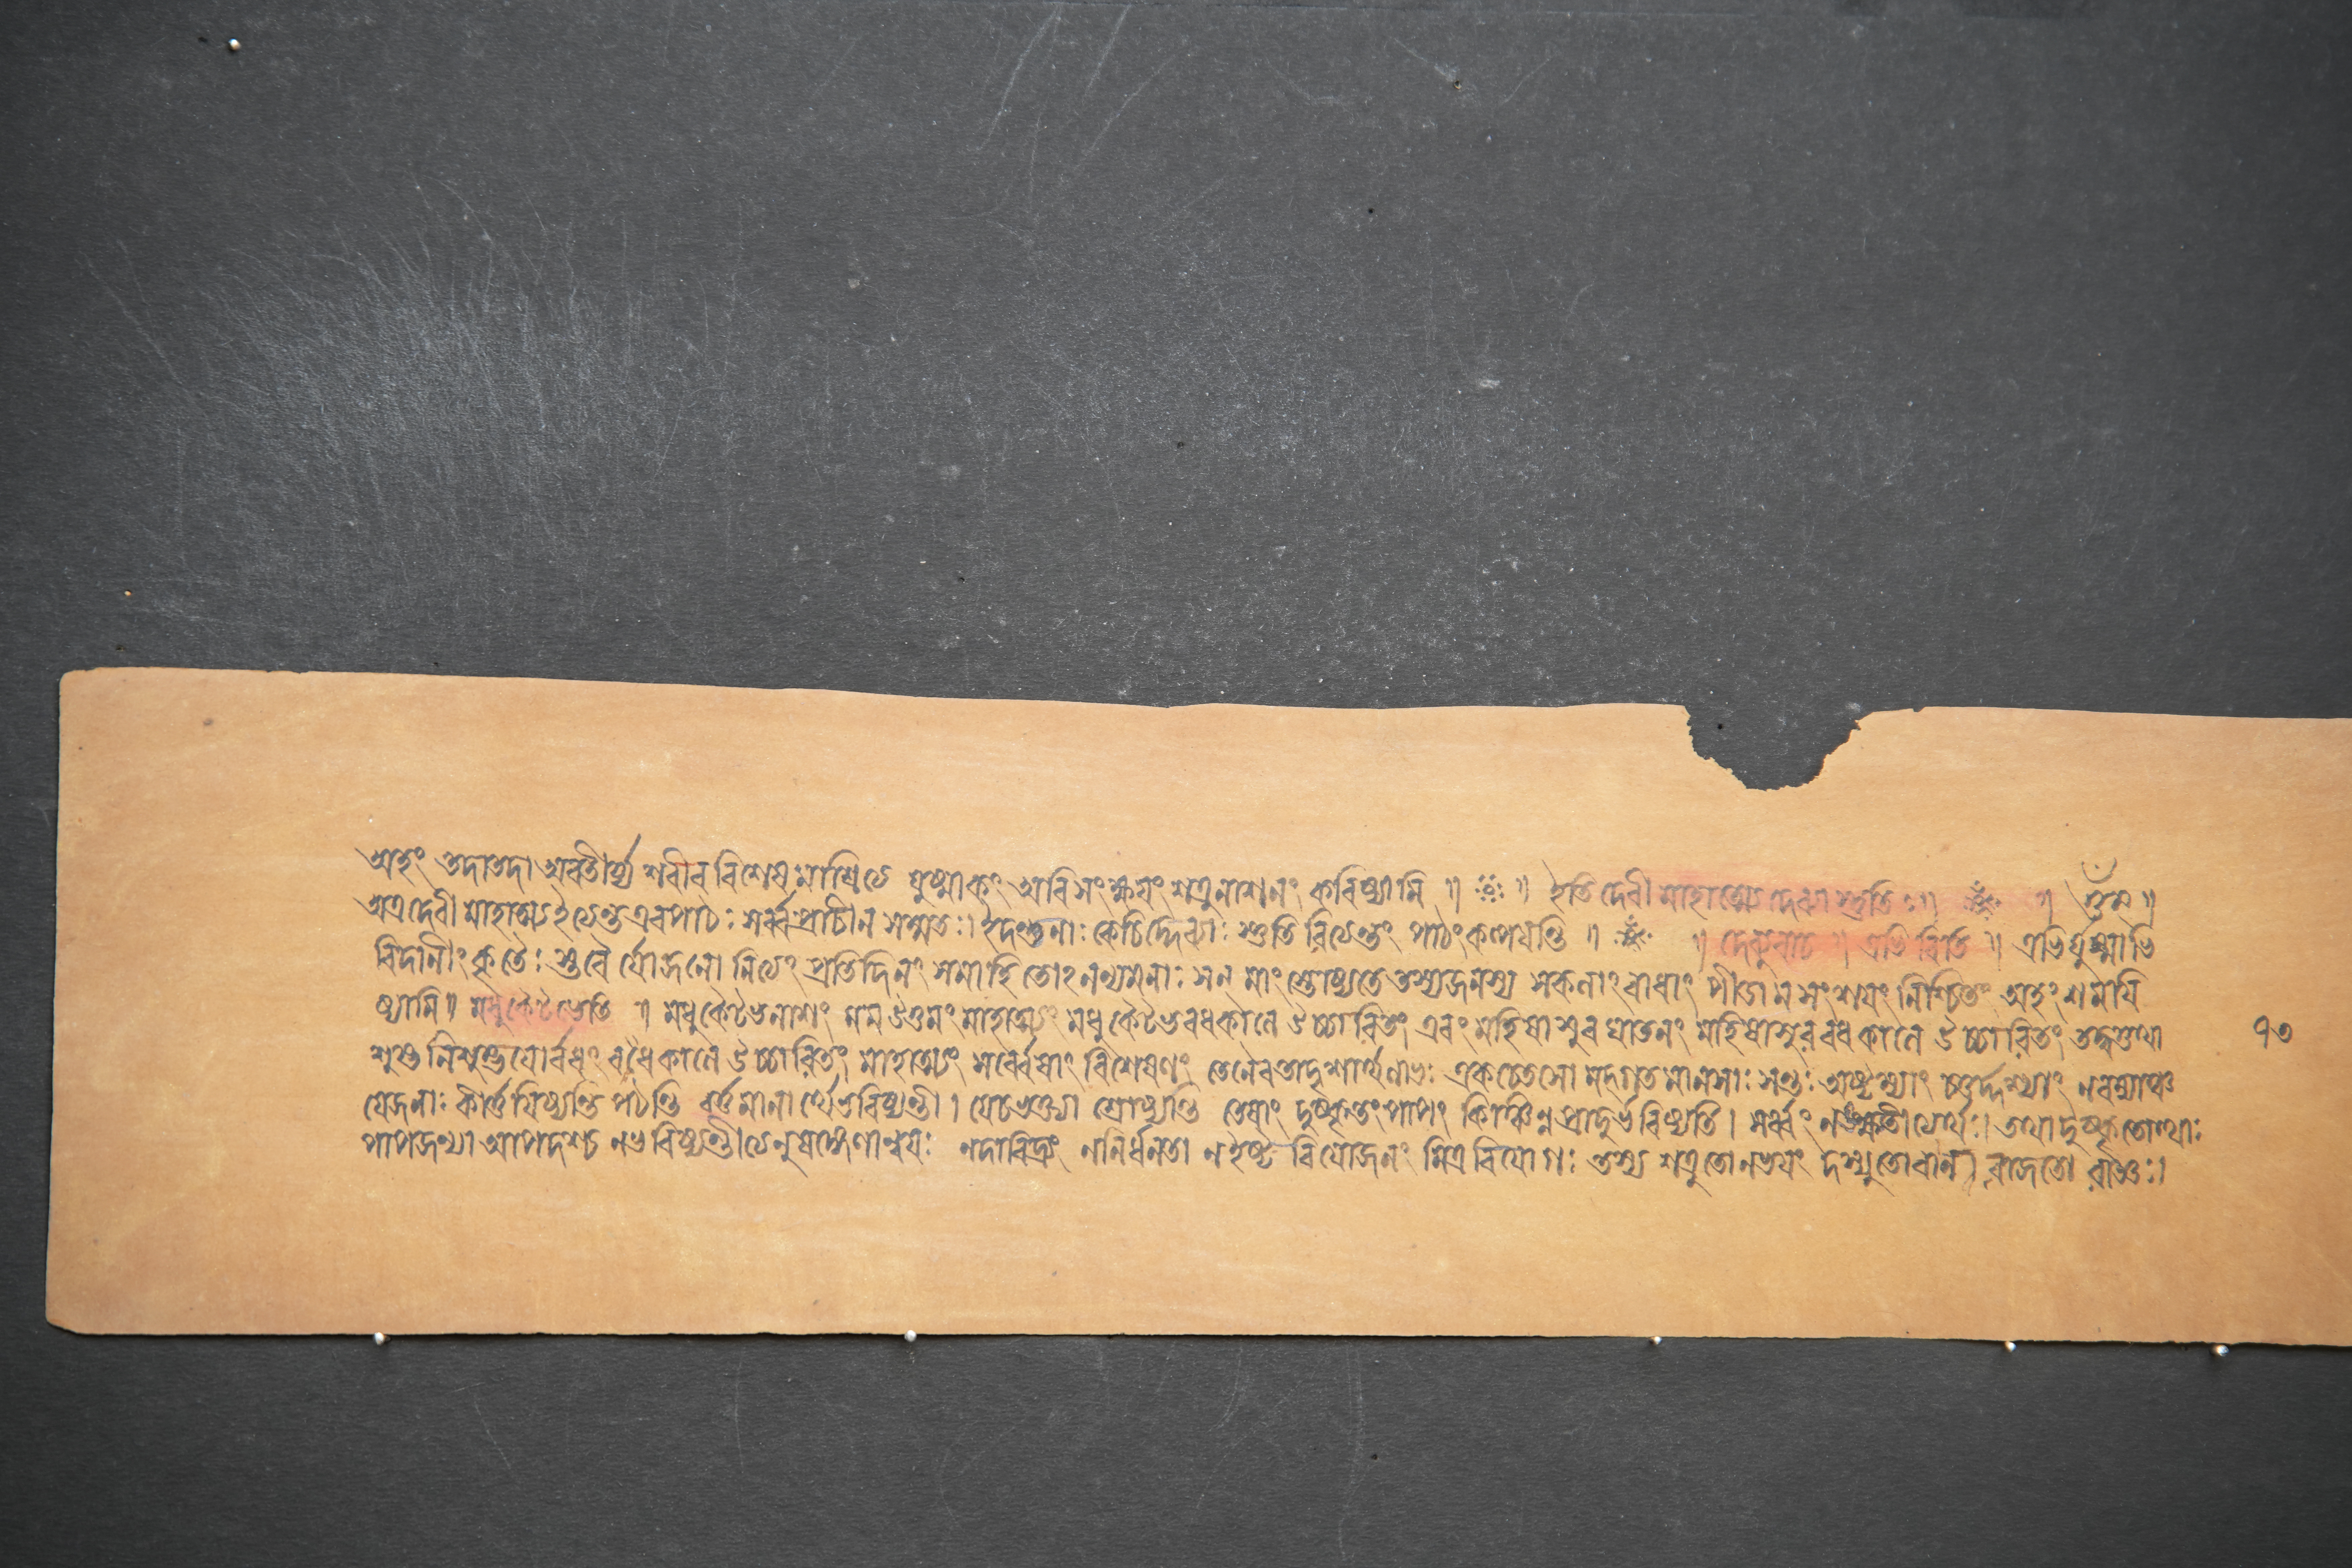 অহং তদাতদা অবতীর্য্য শৰীৰ বিশেষ মাশ্রিত্যে যুষ্মাকং অৰিসংক্ষয়ং শত্রুনাশনং কৰিষ্যামি ॥ ॥ ইতি দেবী মাহাত্ম্যে দেব্যা স্তুতিঃ॥ ॥ ওঁ নম ॥
অত্রদেবী মাহাত্ম্য ইত্যেন্ত এবপাঠঃ সর্ব্বপ্রাচীন সম্মতঃ। ইদন্তুনাঃ কেচিদ্দেব্যাঃ স্তুতি ৰিত্যেন্তং পাঠং কল্পয়ন্তি ॥ ॥ দেব্যুবাচ ॥ এভি ৰিতি ॥ এভির্যুষ্মাভি
ৰিদানীং কৃতৈঃ স্তবৈ র্যোজনো নিত্যং প্রতিদিনং সমাহিতোঽনন্যমনাঃ সন্ মাং স্তোষ্যতে তস্যজনস্য সকলাং বাধাং পীডামসংশয়ং নিশ্চিতং অহং শময়ি
ষ্যামি॥ মধুকৈটভেতি ॥ মধুকৈটভনাশং মম উত্তমং মাহাত্ম্যং মধুকৈটভবধকালে উচ্চাৰিতং এবং মহিষাশুৰ ঘাতনং মহিষাসুৰবধকালে উচ্চাৰিতং তদ্বত্তথা
শুম্ভ নিশুম্ভয়োর্বধং বধৈকালে উচ্চাৰিতং মাহাত্ম্যং সর্ব্বেষাং বিশেষণং তেনৈবতাদৃশার্থলাভঃ একচেতসো মদ্গত মানসাঃ সন্তঃ অষ্টম্যাং চতুর্দ্দশ্যাং নবম্যাঞ্চ
যেজনাঃ কীর্ত্তয়িষ্যন্তি পঠন্তি বর্ত্তমানার্থে ভবিষ্যন্তী। যেচভক্ত্যা শ্রোষ্যন্তি তেষাং দুষ্কৃতং পাপং কিঞ্চিন্ন প্রাদুর্ভবিষ্যতি। সর্ব্বং নঙ্ক্ষ্যতীত্যর্থঃ। তথা দুষ্কৃতোত্থাঃ
পাপজন্যা আপদশ্চ নভবিষ্যন্তীত্যেনুষঙ্গেণান্বয়ঃ নদাৰিদ্র্যং ননির্ধনতা নইষ্ট বিয়োজনং মিত্র বিয়োগঃ তস্য শত্রুতোনভয়ং দস্যুতোবান ৰাজতো ৰাজ্ঞঃ।
৭৩